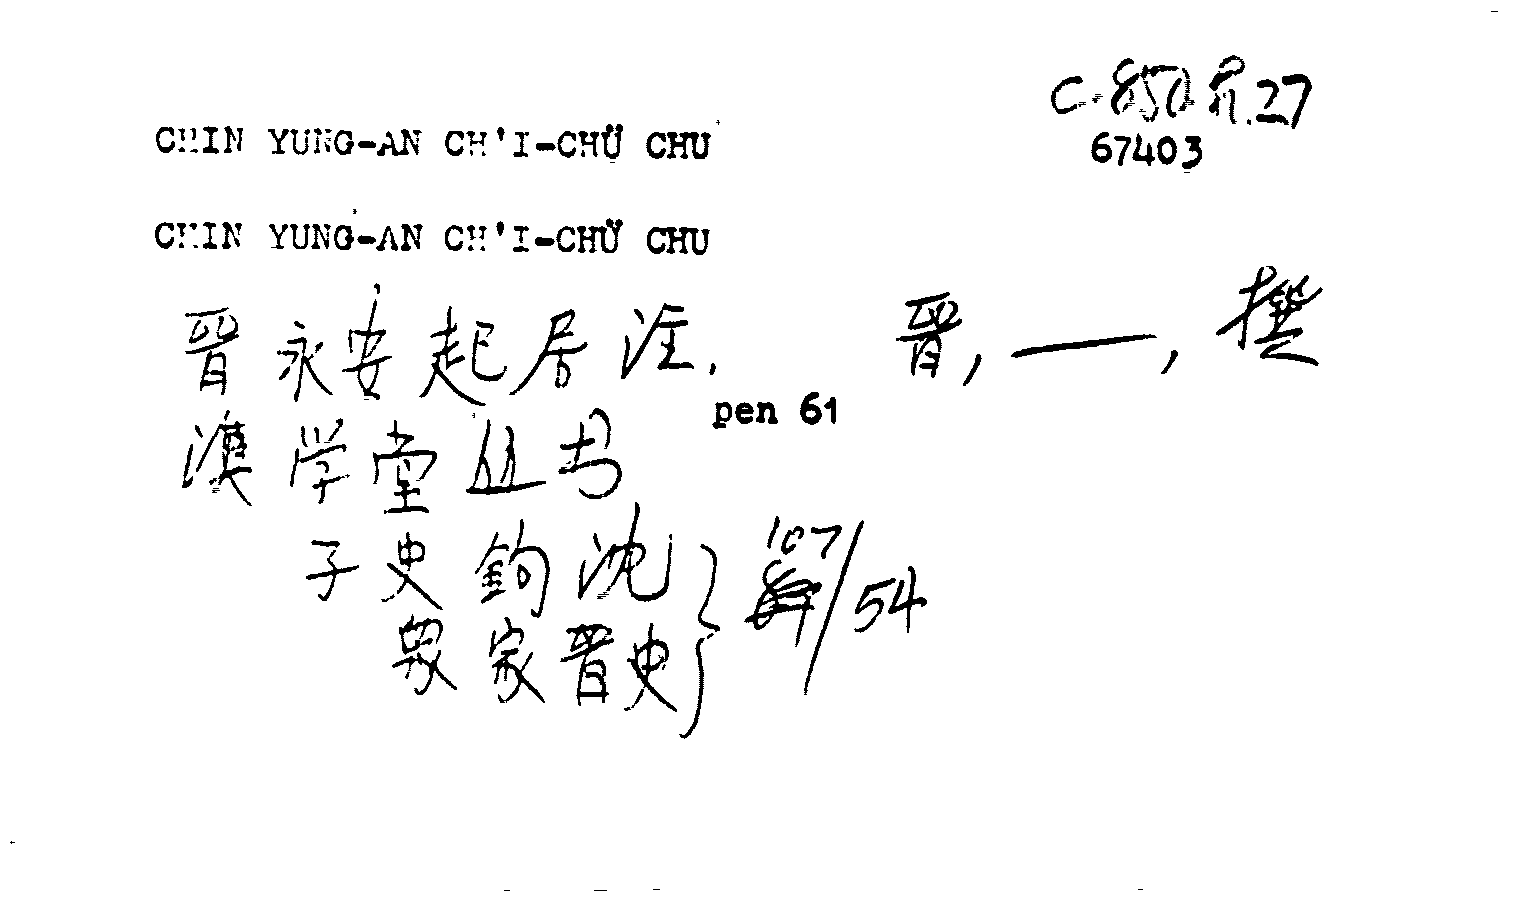 C. 850 .27
67403
CHIN YUNG-AN CH'I-CHÜ CHU
CHIN YUNG-AN CH'I-CHÜ CHU
晋永安起居注. 晋, ——, 撰
pen 61
漢学堂丛书
子史鈎沈
眾家晋史
107/54